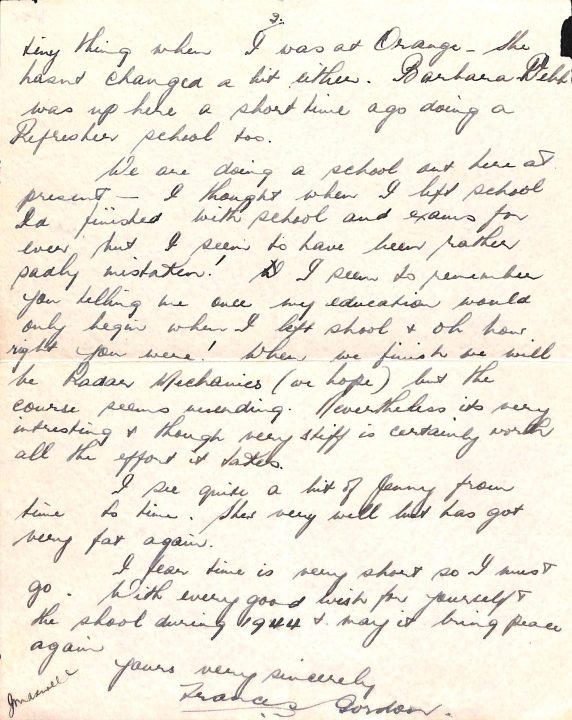 3.
tiny thing when I was at Orange - She
hasnt changed a bit either. Barbara Webb
was up here a short time ago doing a
Refresher school too.
We are doing a school out here at
present - I thought when I left school
I'd finished with school and exams for
ever but I seem to have been rather
sadly mistaken! I seem to remember
you telling me once my education would
only begin when I left shool & oh how
right you were! When we finish we will
be Radar Mechanics (we hope) but the
course seems unending. Nevertheless its very
interesting & though very stiff is certainly worth
all the effort it takes.
I see quite a bit of Jenny from
time to time. Shes very well but has got
very fat again.
I fear time is very short so I must
go. With every good wish for yourself &
the shool during 1944 & may it bring peace
again
Yours very sincerely
Frances Gordon.